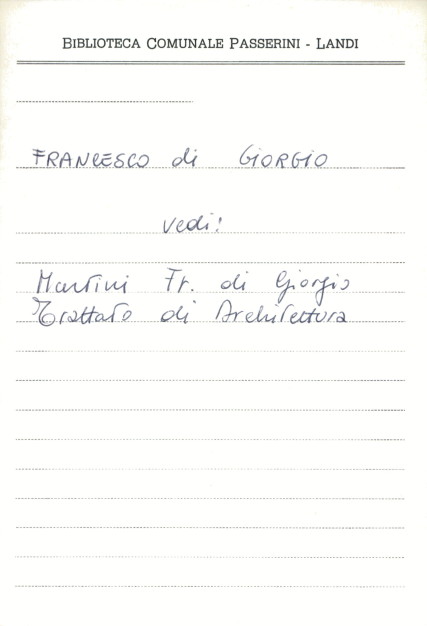 BIBLIOTECA COMUNALE PASSERINI - LANDI
FRANCESCO di GIORGIO
vedi!
Martini Fr. di Giorgio
Trattato di Architettura